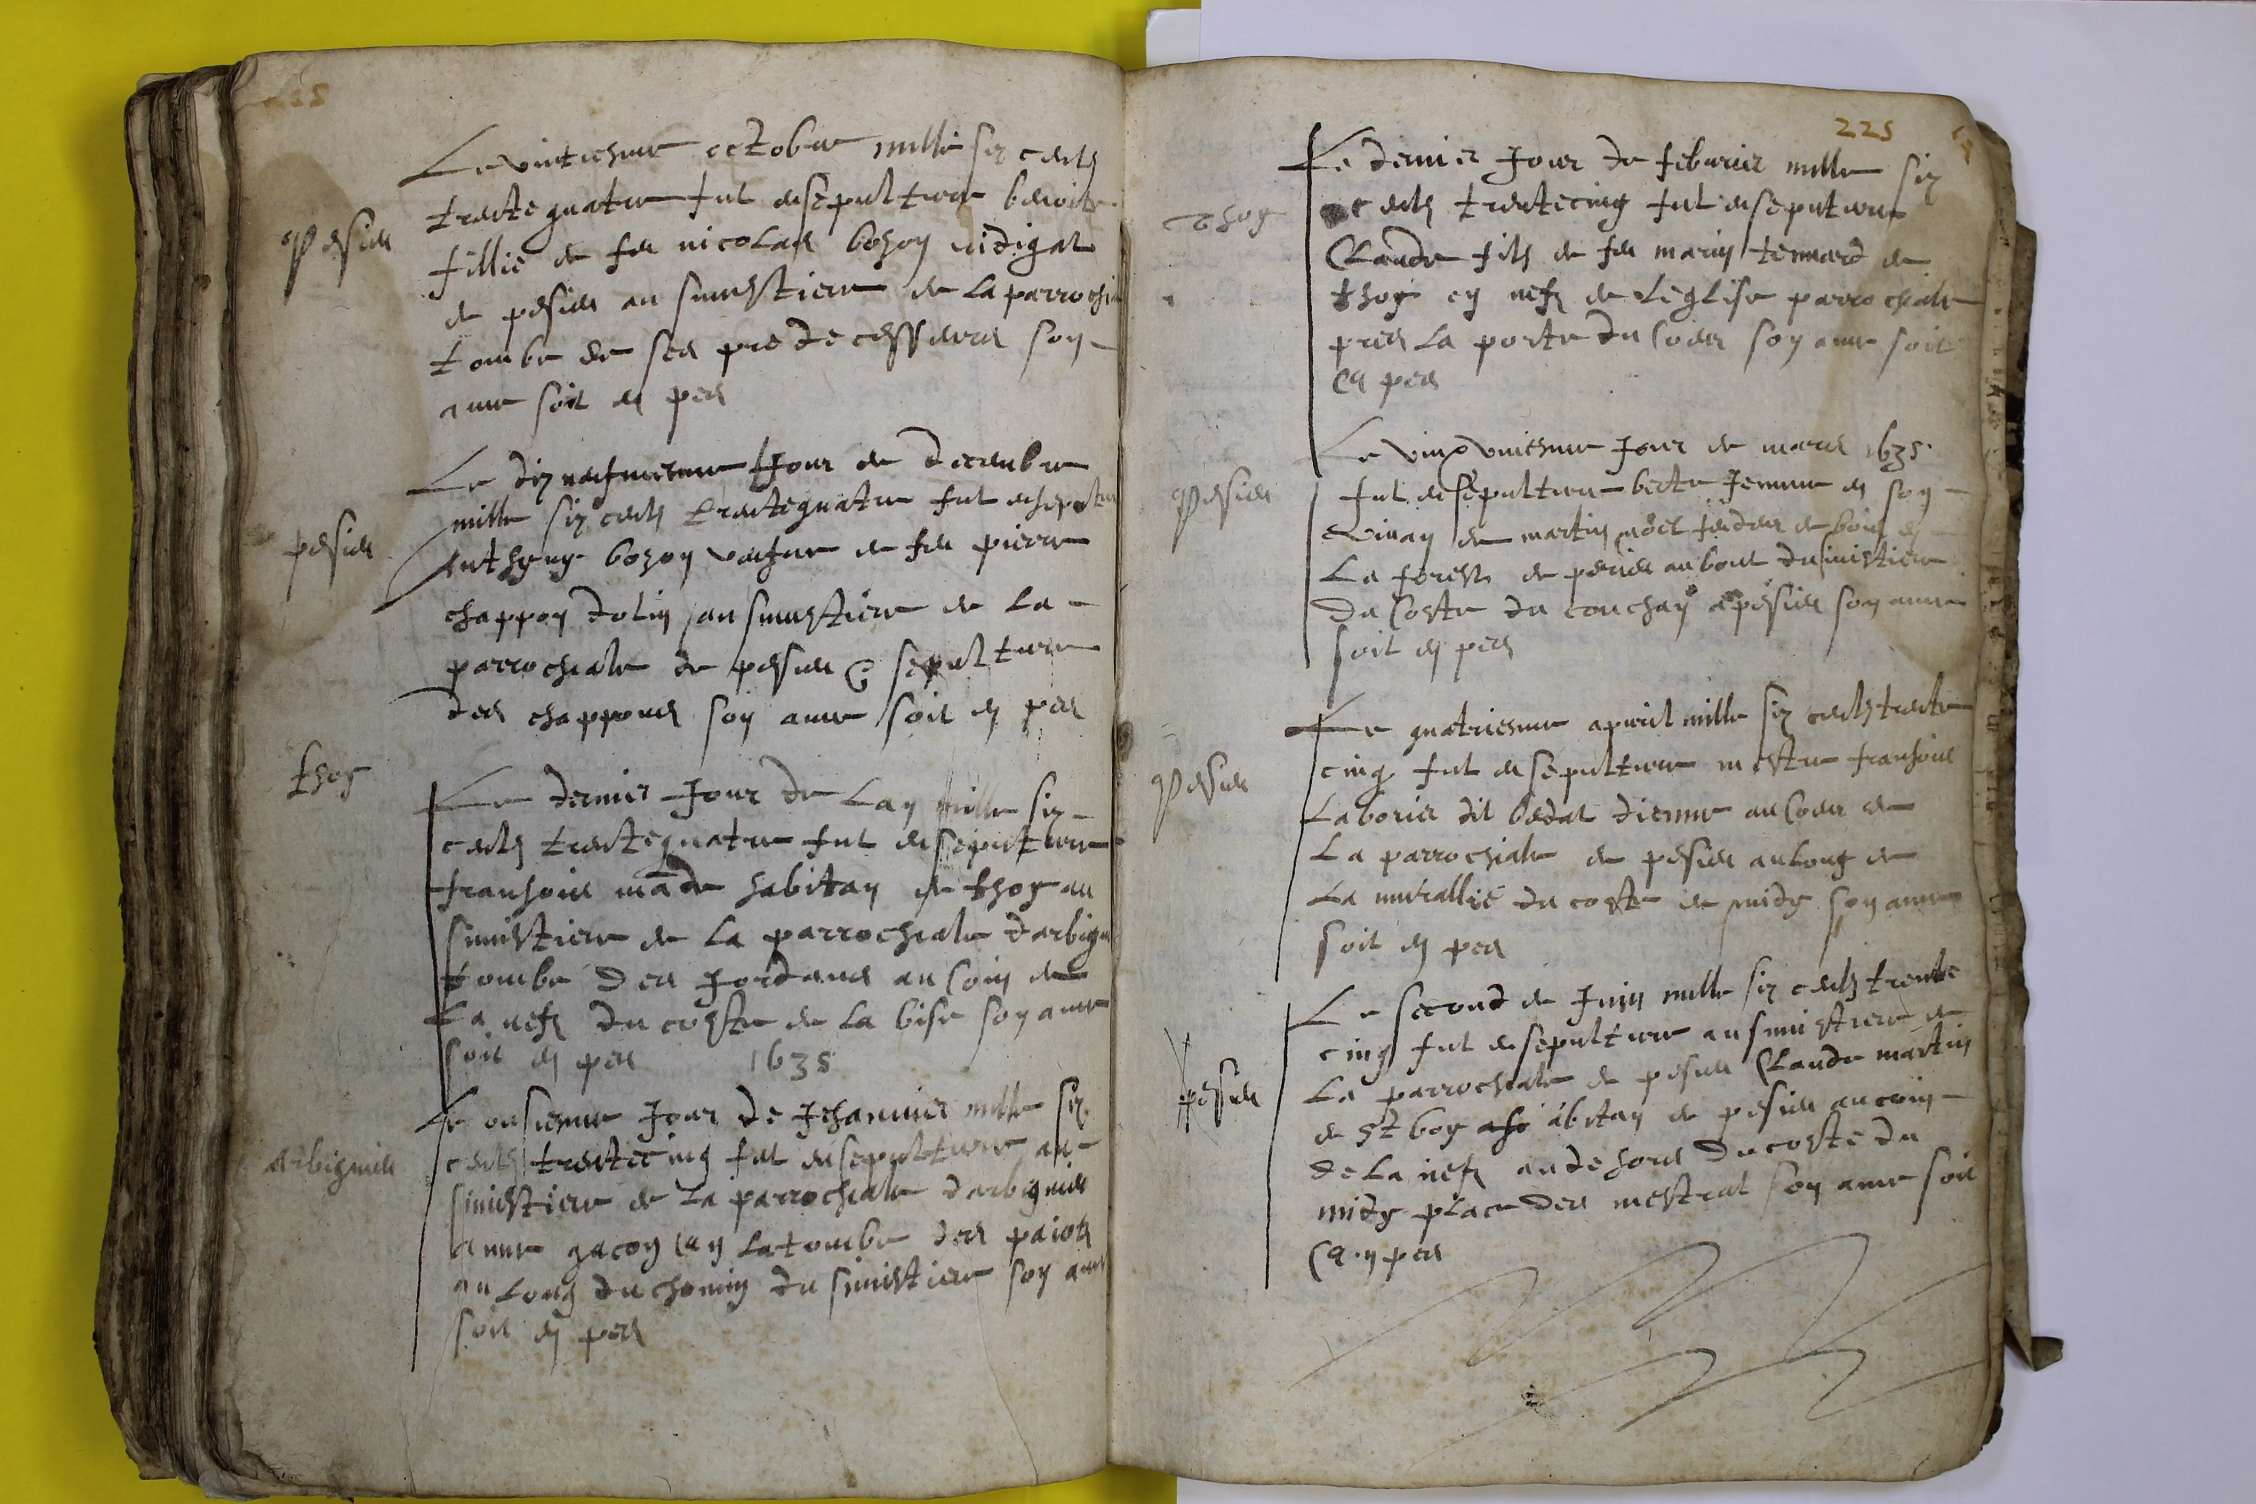 Le vintiesme octobre mille six cents
trente quatre fut ensepulture benoite
fillie de feu nicolas bozon indigat
Pesieu
de pesieu au simestiere de la parrochia
tombe de ses predecesseurs son
ame soit en pes
Le diz neufviesme Jour de decenbre
mille six cents trente quatre fut ensepultur
pesieu
Antheny bozon veufve de feu pierre
chappon dolin au simestiere de la
parrochiale de pesieu & sepulture
des chappons son ame soit en pes
thoy
Le dernier Jour de Lan mille six
cents trente quatre fut ensepulture
franhois made habitan de thoy au
simistiere de la parrochiale darbign
tombe des Jordans au coin de
La nefz du coste de la bise son ame
soit en pes 1635
Le onsiesme Jour de Jehanvier mille six
Arbignieu
cents trente cinq fut ensepulture au
simistiere de La parrochiale darbignieu
Anne gacon en La tombe des paiots
au Long du chemin du simistiere son ame
soit en pes
225
Le dernier Jour de febvrier mille six
cents trente cinq fut ensepulture
Thoy
Claude filz de feu marin tennard de
thoy en nefz de Leglise parrochiale
pres La porte du Coeur son ame soit
en pes
Le vinx uniesme Jour de mars 1635
Pesieu
fut ensepulture berte Jemme en son
vivan de martin noel fendeur de bois en
La forest de pesieu au bout du simistiere
Du Coste du couchan a pesieu son ame
soit en pes
Le quatriesme apvril mille six cents trente
cinq fut ensepulture mestre franhois
Pesieu
Laborier dit bedat dienne au Coeur de
La parrochiale de pesieu au Long de
La murallie du coste de midy son ame
soit en pes
Le second de Juin mille six cents trente
cinq fut ensepulture au simistiere de
pesieu
La parrochiale de pesieu Claude martin
de St boy abitan de pesieu au coin
de La nefz au dehors du coste du
midy place des mestral son ame soit
en pes